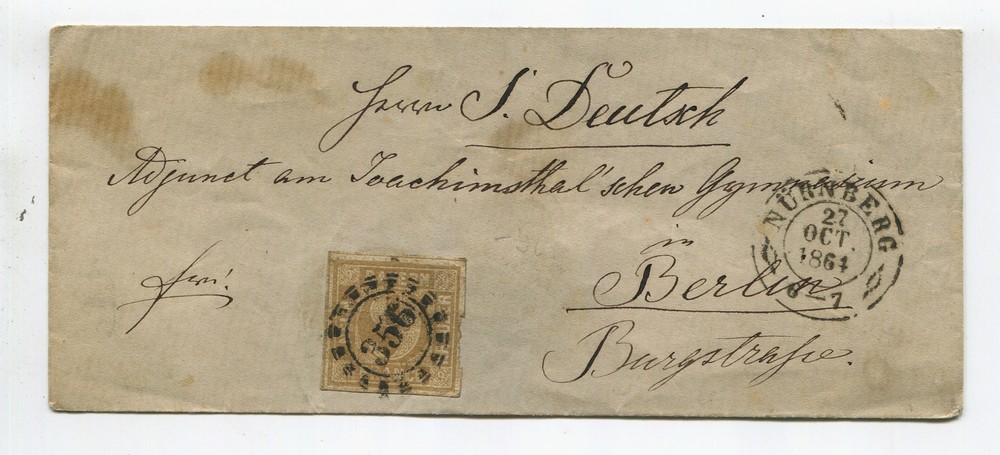 Herrn S. Deutsch
Adjunct am Joachimsthal'schen Gymnasium
in
Berlin
Burgstraße.
frei.
356
NÜRNBERG
27
OCT.
1864
6-7